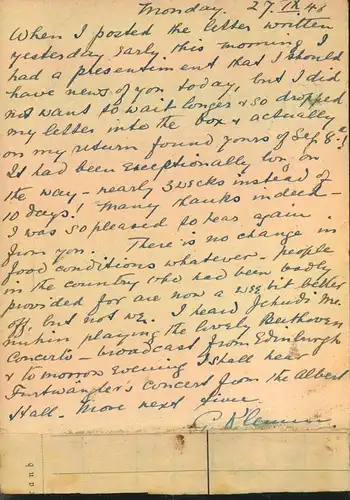 Monday. 27.IX.48
When I posted the letter written
yesterday early this morning, I
had a presentiment that I should
have news of you today, but I did
not want to wait longer & so dropped
my letter into the box & actually
on my return found yours of Sep. 8th!
It had been exceptionally long on
the way – nearly 3 weeks instead of
10 days! Many thanks indeed –
I was so pleased to hear again
from you. There is no change in
food conditions whatever – people
in the country who had been badly
provided for are now a wee bit better
off, but not we. I heard Jehudi Me-
nuhin playing the lovely Beethoven
Concerto – broadcast from Edinburgh
& to morrow evening I shall hear
Furtwängler's concert from the Albert
Hall. More next time.
G.
rand